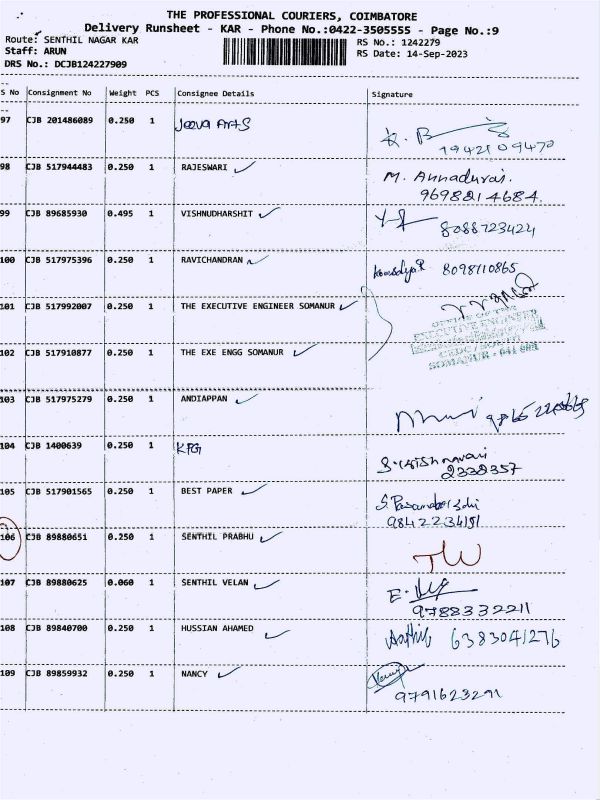 THE PROFESSIONAL COURIERS, COIMBATORE
Delivery Runsheet - KAR - Phone No.:0422-3505555 - Page No.:9
Route: SENTHIL NAGAR KAR
RS No.: 1242279
Staff: ARUN
RS Date: 14-Sep-2023
DRS No.: DCJB124227909
S No Consignment No Weight PCS Consignee Details Signature
97 CJB 201486089 0.250 1 Jeeva Arts
98 CJB 517944483 0.250 1 RAJESWARI M. Annadurai.
9698214684.
99 CJB 89685930 0.495 1 VISHNUDHARSHIT
8088723424
100 CJB 517975396 0.250 1 RAVICHANDRAN 8098110865
101 CJB 517992007 0.250 1 THE EXECUTIVE ENGINEER SOMANUR
OFFICE OF THE
EXECUTIVE ENGINEER
SOMANUR - 641 668
102 CJB 517910877 0.250 1 THE EXE ENGG SOMANUR
103 CJB 517975279 0.250 1 ANDIAPPAN
104 CJB 1400639 0.250 1 KPG
2332357
105 CJB 517901565 0.250 1 BEST PAPER
9842234151
106 CJB 89880651 0.250 1 SENTHIL PRABHU
107 CJB 89880625 0.060 1 SENTHIL VELAN
9788332211
108 CJB 89840700 0.250 1 HUSSIAN AHAMED Aathil 6383041276
109 CJB 89859932 0.250 1 NANCY
9791623291